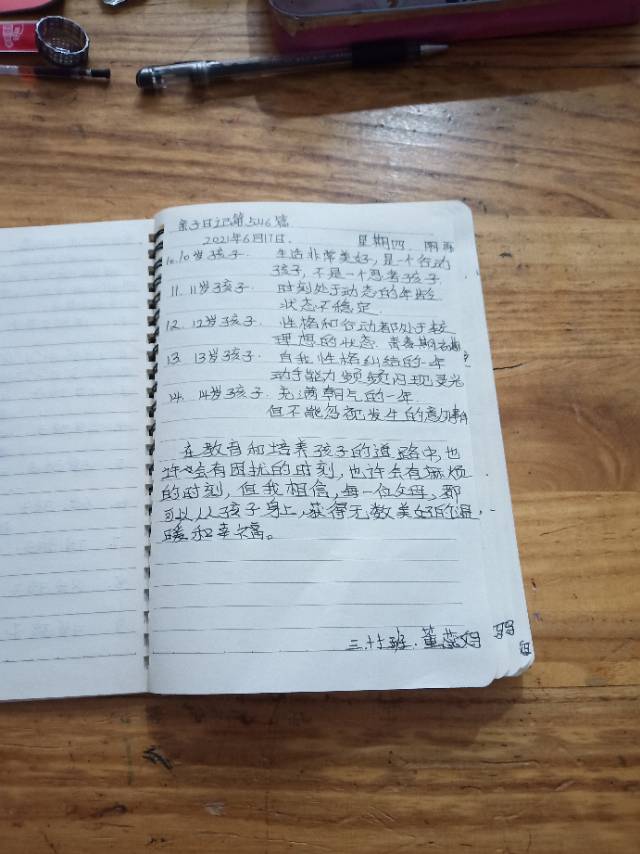 亲子日记第546篇
2021年6月17日. 星期四. 阴雨
10. 10岁孩子. 生活非常美好,是一个行动
孩子,不是一个思考孩子
11. 11岁孩子. 时刻处于动态的年龄
状态不稳定.
12. 12岁孩子. 性格和行动都处于较
理想的状态. 青春期
13. 13岁孩子. 自我性格纠结的一年
动手能力频频闪现灵光
14. 14岁孩子. 充满朝气的一年.
但不能忽视发生的意外事
在教育和培养孩子的道路中,也
许会有困扰的时刻,也许会有麻烦
的时刻,但我相信,每一位父母,都
可以从孩子身上,获得无数美好的温
暖和幸福。
三.十五班. 董蕊妈妈